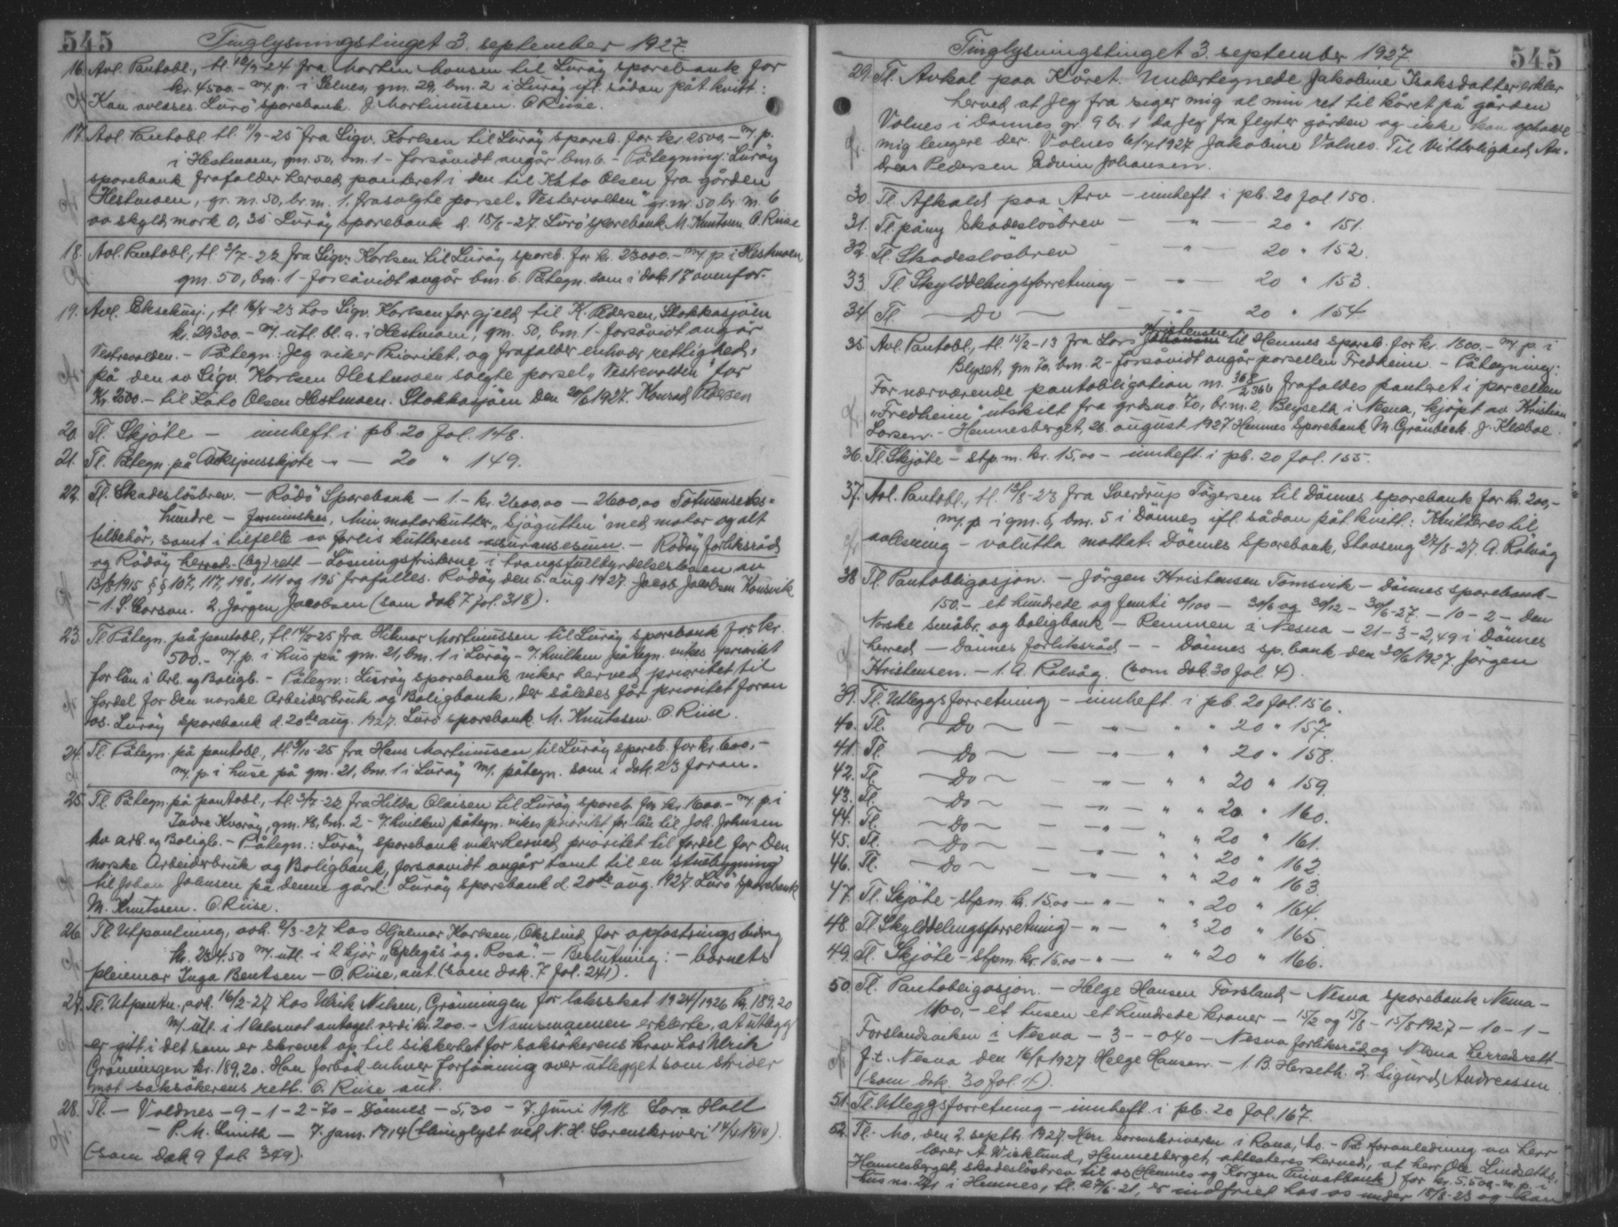 545 Tinglysningstinget 3. september 1927.
16. Avl. Pantobl., tl. 18/7-24 fra Morten Monsen til Lurøy sparebank for
kr. 4500.- m/ p. i Selnes, gm. 29, bm. 2 i Lurøy ifl. sådan påt. kvitt:
Kan avleses Lurø sparebank. J. Martinussen. O. Riise.
17. Avl. Pantobl. tl. /7-25 fra Sigv. Karlsen til Lurøy spareb. for kr. 2500.- m/ p.
i Hestmoen, gm. 50, bm. 1 - forsåvidt angår bm. 6. - Påtegning: Lurøy
sparebank frafalder herved panteret i den til Kato Olsen fra gården
Hestmoen, gr. nr. 50, br. nr. 1, frasolgte parsel "Vestervolden" gr. nr. 50 br. nr. 6
av skyld mark 0,35 Lurøy sparebank d. 15/8-27. Lurø sparebank M. Knutsen O. Riise
18. Avl. Pantobl., tl. 2/7-22 fra Sigv. Karlsen til Lurøy spareb. for kr. 23000.- m/ p. i Hestmoen
gm. 50, bm. 1 - forsåvidt angår bm. 6. Påtegn. som i dok 17 ovenfor.
19. Avl. Eksekusj., tl. 16/8-23 hos Sigv. Karlsen for gjeld til K. Pedersen, Stokkasjøen
kr. 29300.- m/ utl. bl. a. i Hestmoen, gm. 50, bm. 1 - forsåvidt angår
Vestrevolden. - Påtegn: Jeg viker Prioritet og frafalder enhver rettighed,
på den av Sigv. Karlsen Hestmoen solgte parsel "Vestrevolden" for
Kr. 2500.- til Kato Olsen Hestmoen. Stokkasjøen den 20/6 1927. Konrad Pedersen
20. Tl. Skjøte - innheft i pb. 20 fol. 148.
21. Tl. Påtegn. på Auksjonsskjøte - " - 20 " 149.
22. Tl. Skadesløsbrev. - Rødø Sparebank - 1.- kr. 2600,00 - 2600,00 Totusenseks=
hundre - Min motorkutter "Sjøgutten" med motor og alt
tilbehør, samt i tilfelle av forlis kutterens assuransesum. - Rødøy forliksråd
og Rødøy herreds (by) rett - Løsningsfristerne i tvangsfullbyrdelsesloven av
13/8 1915 §§ 107, 117, 198, 111 og 195 frafalles. Rødøy den 5. aug 1927. Jacob Jacobsen Konsvik
- 1. S. Larsen. 2. Jørgen Jacobsen (som dok 7 fol. 318).
23. Tl. Påtegn. på pantobl., tl. 14/5-25 fra Hilmar Martinussen til Lurøy sparebank for kr.
500.- m/ p. i hus på gm. 21, bm. 1 i Lurøy - v/ hvilken påtegn. vikes prioritet
for lån i Arb. og Boligb. - Påtegn: Lurøy sparebank viker herved prioritet til
fordel for den norske Arbeiderbruk og Boligbank, der således får prioritet foran
os. Lurøy sparebank d. 20de aug. 1927. Lurø sparebank. M. Knutssen. O. Riise.
24. Tl. Påtegn. på pantobl., tl. 9/10-25 fra Hans Martinusen til Lurøy spareb. for kr. 600.-
m/ p. i huse på gm. 21, bm. 1 i Lurøy m/ påtegn. som i dok. 23 foran.
25. Tl. Påtegn. på pantobl., tl. 3/7-22 fra Hilda Olaisen til Lurøy spareb. for kr. 1600.- m/ p. i
Indre Kvarøy, gm. 18, bm. 2 - v/ hvilken påtegn. vikes prioritet for lån til Joh. Johnsen
av arb. og Boligb. - Påtegn.: Lurøy sparebank viker herved prioritet til fordel for Den
norske Arbeiderbruk og Boligbank, forsaavidt angår tomt til en stuebygning
til Johan Johnsen på denne gård. Lurøy sparebank d. 20de aug. 1927 Lurø sparebank
M. Knutssen. O. Riise.
26. Tl. Utpantning, avh. 2/3-27 hos Hjalmar Kardsen, Okstind, for opfostringsbidrag
kr. 234.50 m/ utl. i 2 kjør "Eplegås" og "Rosa". - Beslutning: - barnets
pleiemor Inga Bentsen - O. Riise, aut. (som dok. 7 fol. 241).
27. Tl. Utpantn. avh. 16/2-27 hos Ulrik Nilsen, Grønningen for taksskat 1924/1926 kr. 189,20
m/ utl. i 1 laksenot antagel. verdi kr. 200.- Namsmannen erklærte, at utlegg
er gitt i det som er skrevet op til sikkerhet for saksøkerens krav hos Ulrik
Grønningen kr. 189,20. Han forbød enhver forføining over utlegget som strider
mot saksøkerens rett. O. Riise aut.
28. Tl. - Voldnes - 9 - 1 - 2 - 70 - Dønnes - 5,30 - 7. juni 1918 Lara Holl
- P. M. Smith - 7. jan. 1914 (tinglyst ved N. H. Sorenskriveri 14/4 1914).
(som dok 9 fol. 349).
Tinglysningstinget 3. september 1927 545
29. Tl. Avkal paa Kåret. Undertegnede Jakobine Isaksdatter erkler
herved at Jeg fra siger mig al min ret til kåret på gården
Volnes i Dønnes gr. 9 br. 1 da Jeg fra flyter gården og ikke kan opholde
mig lengere der. Volnes 6/7 1927 Jakobine Volnes. Til Vitterlighed An-
dreas Pedersen Edvin Johansen.
30. Tl. Afkald paa Arv - innheft i pb. 20 fol 150.
31. Tl. påny Skadesløsbrev - " - 20 " 151.
32. Tl. Skadesløsbrev - " - 20 " 152.
33. Tl. Skylddelingsforretning - " - 20 " 153.
34. Tl. - Do - " 20 " 154
35. Avl. Pantobl., tl. 15/2-13 fra Lars Kristensen til Hemnes spareb. for kr. 1600.- m/ p. i
Blyset, gm. 70, bm. 2 - forsåvidt angår parsellen Fredheim - Påtegning:
For nærværende pantobligation m. frafaldes panteret i parcellen
"Fredheim" utskilt fra grdsno. 70, br. nr. 2, Beyseth i Nesna, kjøpt av Kristian
Larsen. - Hemnesberget, 26. august 1927 Hemnes Sparebank M. Grønbeck. J. Klæboe.
36. Tl. Skjøte - stp. m. kr. 15,00 - innheft. i pb. 20 fol. 155.
37. Avl. Pantobl., tl. 13/8-23 fra Sverdrup Tøgersen til Dønnes sparebank for kr. 200,-
m/ p. i gm. 6, bnr. 5 i Dønnes ifl. sådan påt. kvitt.: Kvitteres til
avlesning - valutta mottat. Dønnes Sparebank, Stavseng 27/8-27. A. Rølvåg
38. Tl. Pantobligasjon. - Jørgen Kristensen Tomsvik - Dønnes sparebank -
150.- et hundrede og femti 0/100 - 30/6 og 30/12 - 30/6-27. - 10 - 2 - den
Norske småbr. og boligbank - Remmen i Nesna - 21 - 3 - 2,49 i Dønnes
herred - Dønnes forliksråd - - Dønnes sp. bank den 30/6 1927. Jørgen
Kristensen. - 1. A. Rølvåg. (som dok. 30 fol. 4).
39. Tl. Utleggsforretning - innheft i pb. 20 fol. 156.
40. Tl. - Do - " - " " 20 " 157.
41. Tl. - Do - " - " " 20 " 158.
42. Tl. - Do - " - " " 20 " 159.
43. Tl. - Do - " - " " 20 " 160.
44. Tl. - Do - " - " " 20 " 161.
45. Tl. - Do - " - " " 20 " 162.
46. Tl. - Do - " - " " 20 " 163.
47. Tl. Skjøte - stpm. kr. 15.00 - " - " " 20 " 164.
48. Tl. Skylddelingsforretning - " - " " 20 " 165.
49. Tl. Skjøte - stpm. kr. 15.00 - " - " " 20 " 166.
50. Tl. Pantobligasjon. - Helge Hansen Forsland - Nesna sparebank Nesna -
1100,- et tusen et hundrede kroner - 15/2 og 15/8 - 15/8 1927 - 10 - 1 -
i Nesna - 3 - - 040 - Nesna forliksråd og Nesna herredsrett -
f. t. Nesna den 16/7 1927 Helge Hansen. - 1. B. Herseth. 2. Sigurd Andreassen
(som dok. 30 fol. 4).
51. Tl. Utleggsforretning - innheft. i pb. 20 fol. 167.
52. Tl. Mo, den 2. septbr. 1927. Herr sorenskriveren i Rana, Mo. - På foranledning av herr
lærer A. Wicklund, Hemnesberget, attesteres herved, at herr Ole Lindseths,
Hemnesberget, skadesløsbrev til os (Hemnes og Korgen Privatbank) for kr. 5.500.- m. p. i
hus nr. i Hemnes, tl. -21, er indfriet hos os under 15/8-23 og kan